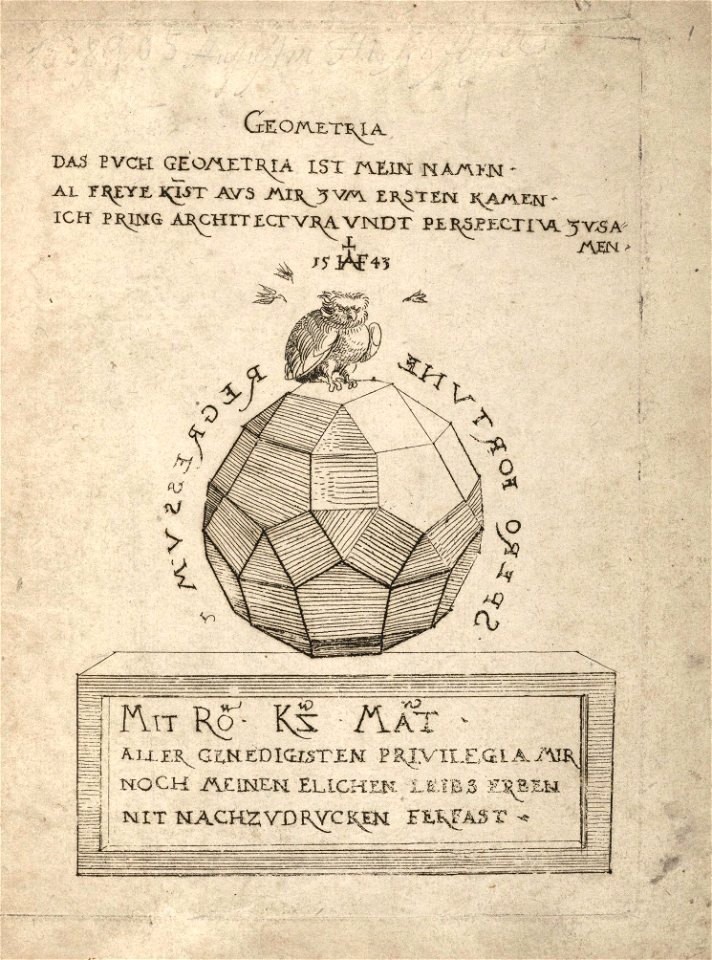 GEOMETRIA
DAS PVCH GEOMETRIA IST MEIN NAMEN ·
AL FREYE KĪST AVS MIR ZVM ERSTEN KAMEN ·
ICH PRING ARCHITECTVRA VNDT PERSPECTIVA ZVSA
MEN ·
15 HAF 43
SPERO FORTVNE REGRESSVM
MIT RÖ · KZ · MAT ·
ALLER GENEDIGISTEN PRIVILEGIA MIR
NOCH MEINEN ELICHEN LEIBS ERBEN
NIT NACHZVDRVCKEN FERFAST ·